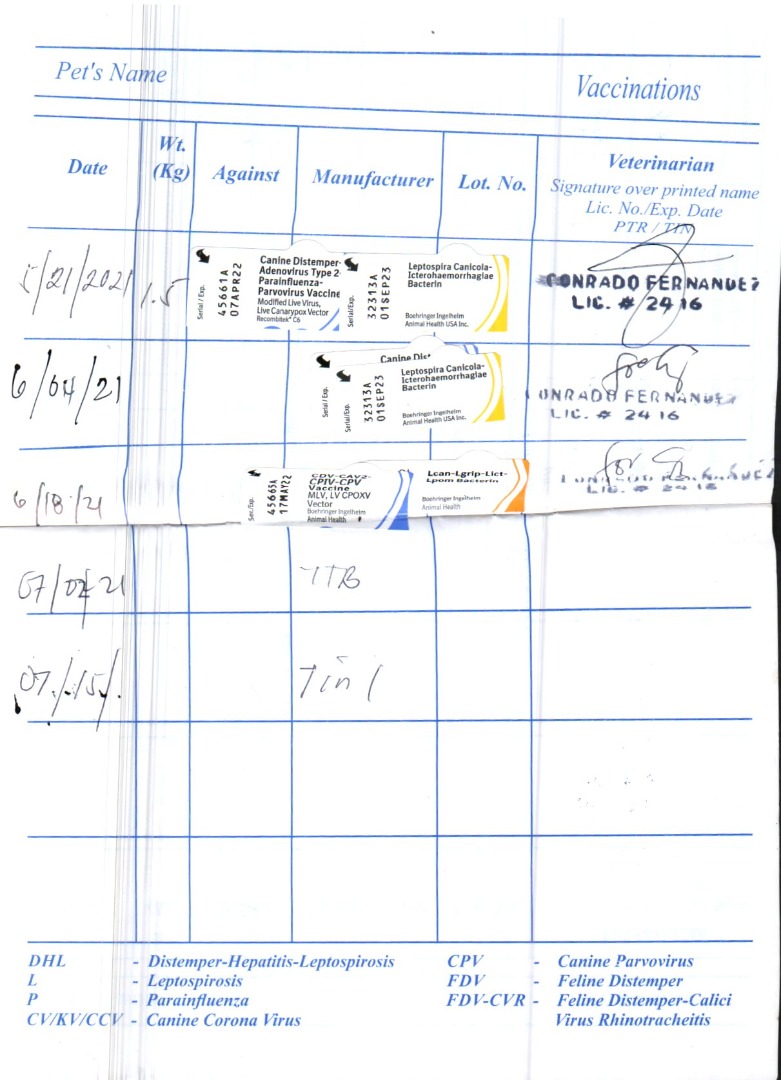 Pet's Name
Vaccinations
Date
Wt.
(Kg)
Against
Manufacturer
Lot. No.
Veterinarian
Signature over printed name
Lic. No./Exp. Date
PTR / TIN
5/21/2021
1.5
Serial / Exp.
45661A
07APR22
Canine Distemper-
Adenovirus Type 2-
Parainfluenza-
Parvovirus Vaccine
Modified Live Virus,
Live Canarypox Vector
Recombitek® C6
Serial/Exp.
32313A
01SEP23
Leptospira Canicola-
Icterohaemorrhagiae
Bacterin
Boehringer Ingelheim
Animal Health USA Inc.
CONRADO FERNANDEZ
LIC. # 2416
6/04/21
Serial / Exp.
Canine Dist
Serial/Exp.
32313A
01SEP23
Leptospira Canicola-
Icterohaemorrhagiae
Bacterin
Boehringer Ingelheim
Animal Health USA Inc.
ONRADO FERNANDEZ
LIC. # 2416
6/18/21
Ser./Exp.
45665A
17MAY22
CDV-CAV2-
CPIV-CPV
Vaccine
MLV, LV CPOXV
Vector
Boehringer Ingelheim
Animal Health
Lcan-Lgrip-Lict-
Lpom Bacterin
Boehringer Ingelheim
Animal Health
LIC. # 2416
07/02/21
07/15/
DHL - Distemper-Hepatitis-Leptospirosis
L - Leptospirosis
P - Parainfluenza
CV/KV/CCV - Canine Corona Virus
CPV - Canine Parvovirus
FDV - Feline Distemper
FDV-CVR - Feline Distemper-Calici
Virus Rhinotracheitis